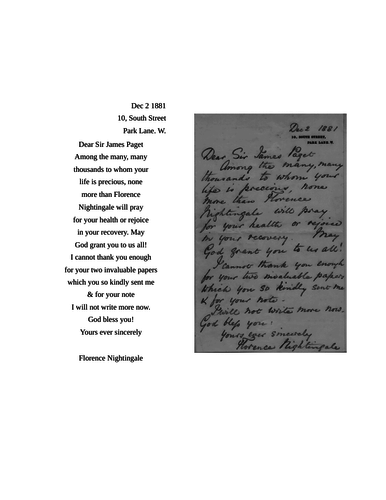 Dec 2 1881
10, South Street
Park Lane. W.
Dear Sir James Paget
Among the many, many
thousands to whom your
life is precious, none
more than Florence
Nightingale will pray
for your health or rejoice
in your recovery. May
God grant you to us all!
I cannot thank you enough
for your two invaluable papers
which you so kindly sent me
& for your note
I will not write more now.
God bless you!
Yours ever sincerely
Florence Nightingale
Dec 2 1881
10, SOUTH STREET,
PARK LANE. W.
Dear Sir James Paget
Among the many, many
thousands to whom your
life is precious, none
more than Florence
Nightingale will pray
for your health or rejoice
in your recovery. Pray
God grant you to us all!
I cannot thank you enough
for your two invaluable papers,
which you so kindly sent me
& for your note.
I will not write more now.
God bless you!
Yours ever sincerely
Florence Nightingale